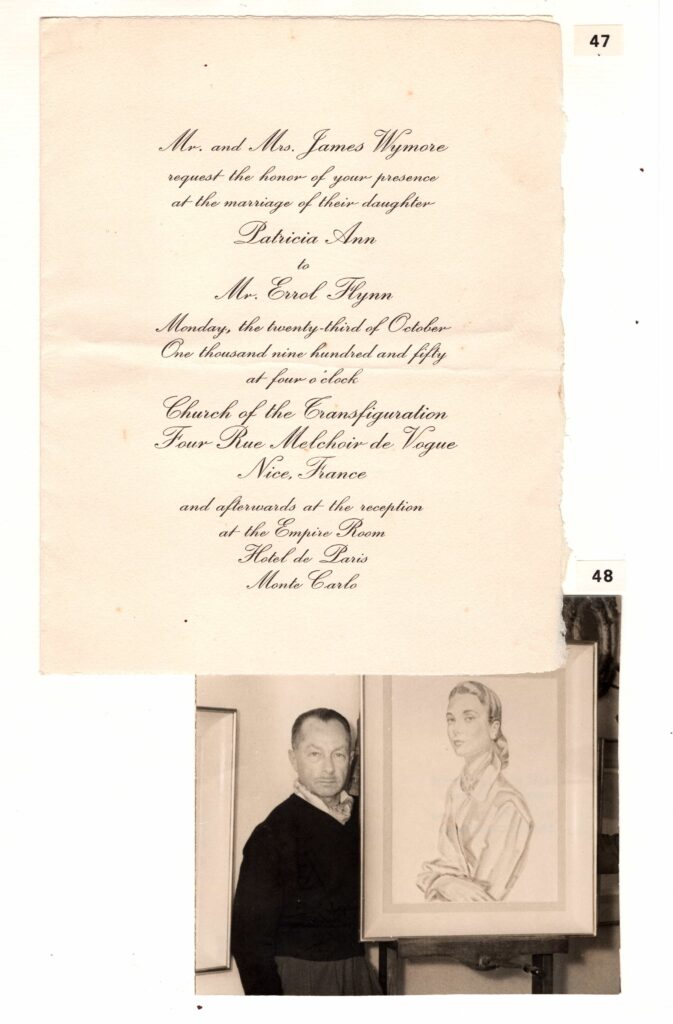 47
Mr. and Mrs. James Wymore
request the honor of your presence
at the marriage of their daughter
Patricia Ann
to
Mr. Errol Flynn
Monday, the twenty-third of October
One thousand nine hundred and fifty
at four o'clock
Church of the Transfiguration
Four Rue Melchoir de Vogue
Nice, France
and afterwards at the reception
at the Empire Room
Hotel de Paris
Monte Carlo
48